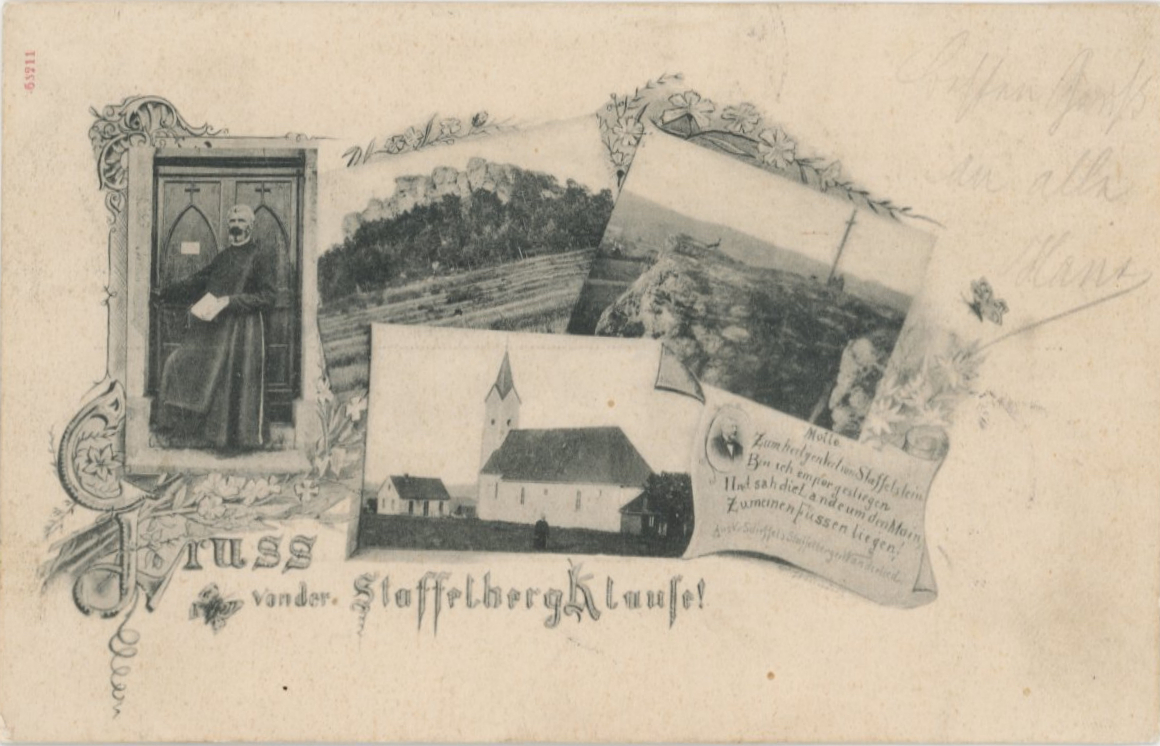 63211
Besten Gruß
an alle
Hans
Motto
Zum heilgen Veit von Staffelstein
Bin ich emporgestiegen
Und sah die Lande um den Main
Zu meinen Füssen liegen!
Gruss
von der Staffelberg Klause!